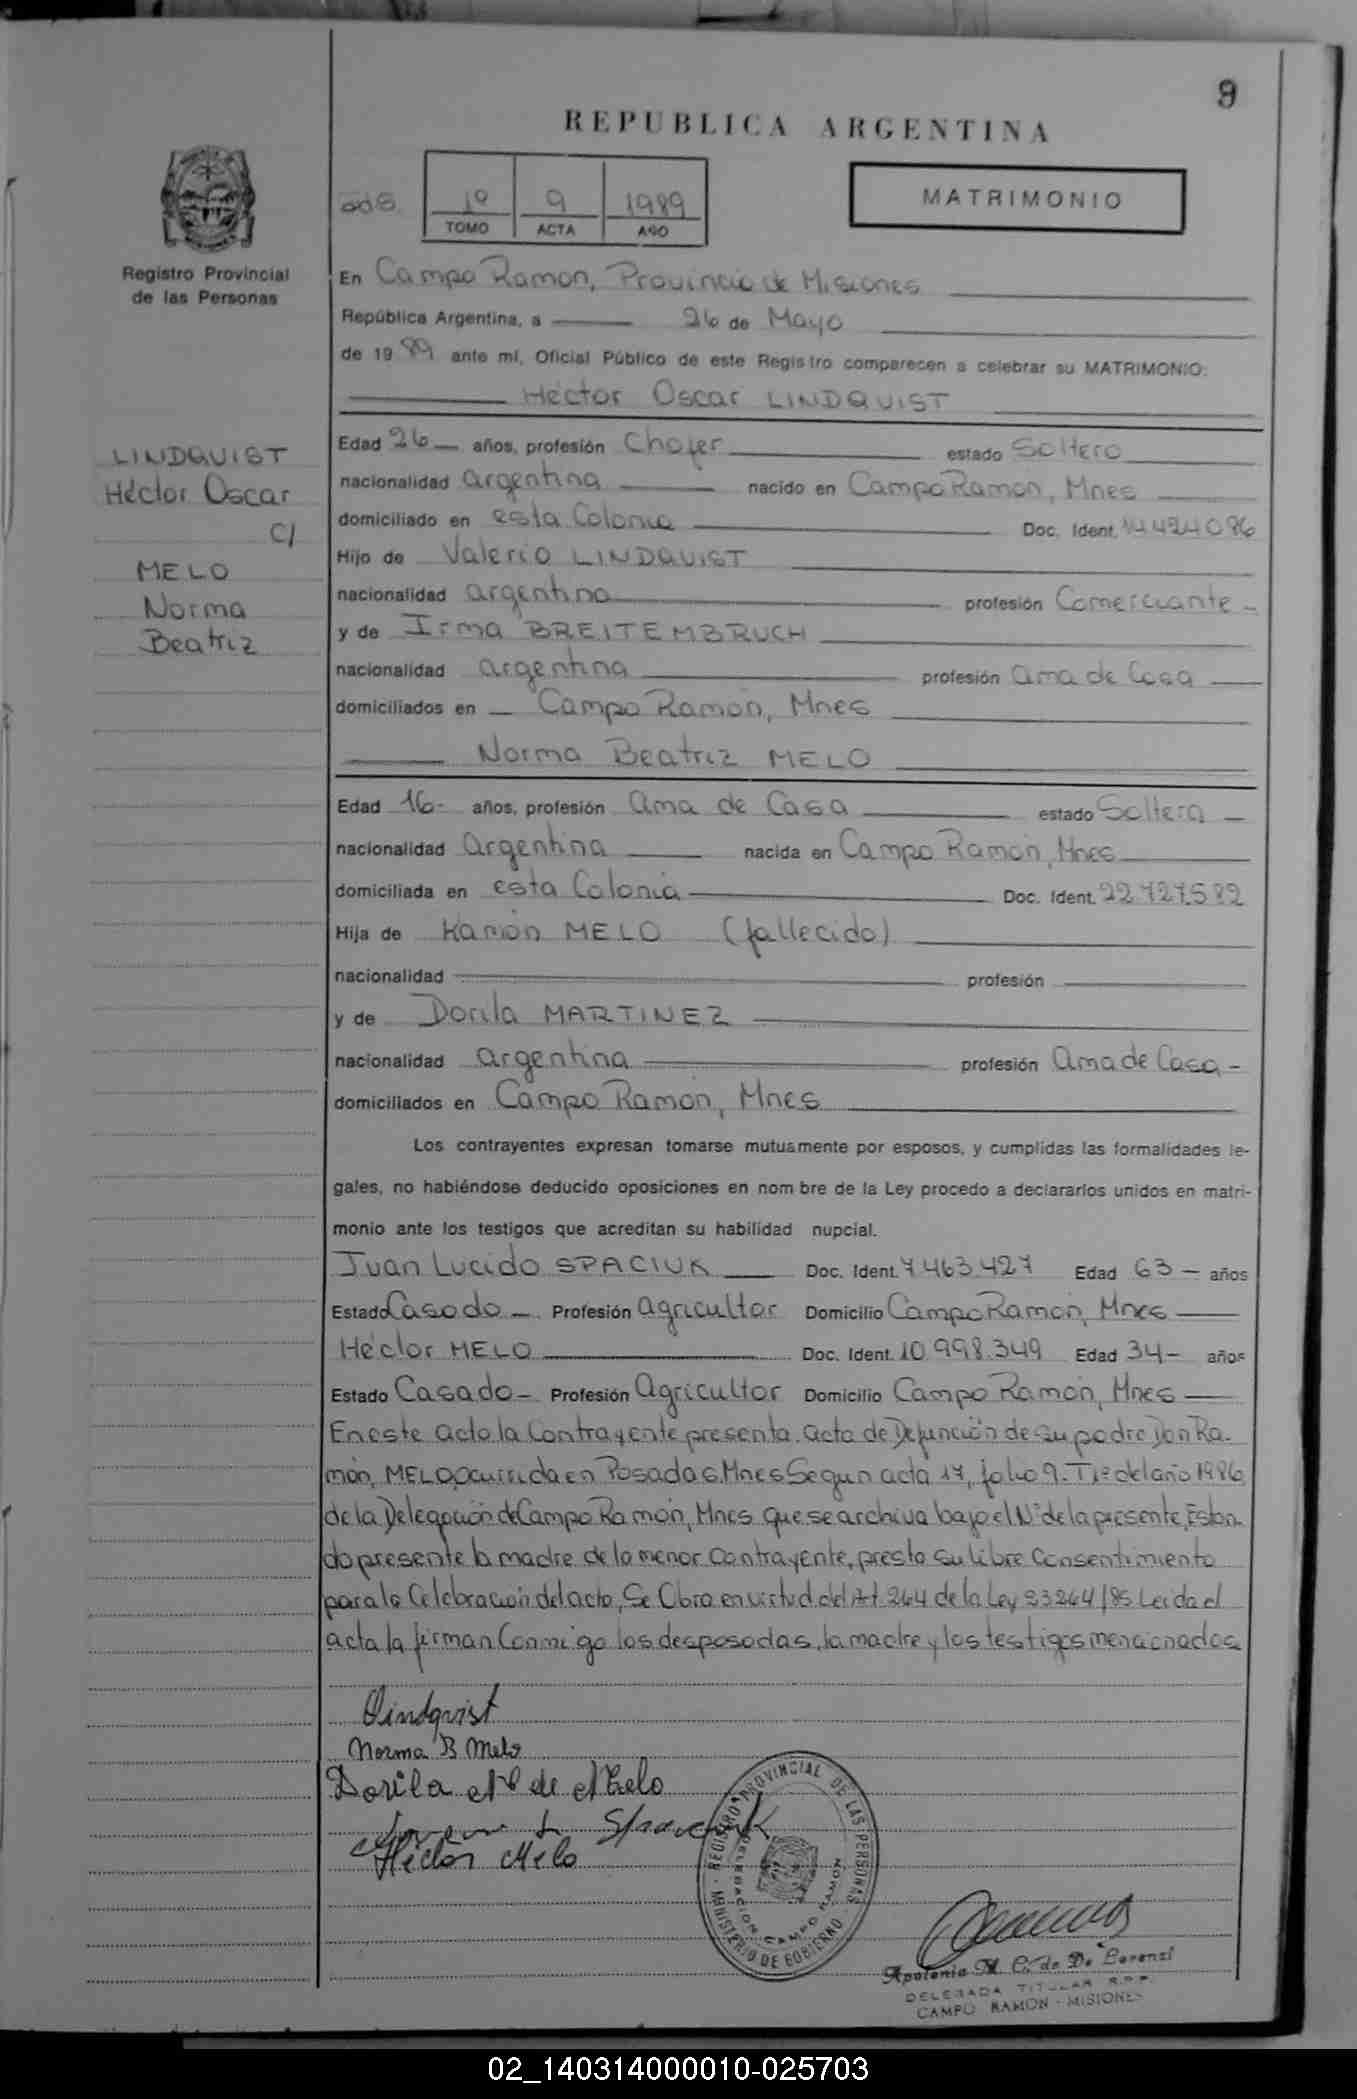 9
REPUBLICA ARGENTINA
MATRIMONIO
1º 9 1989
TOMO ACTA AÑO
Registro Provincial
de las Personas
En Campo Ramón, Provincia de Misiones
República Argentina, a 26 de Mayo
de 1989 ante mí, Oficial Público de este Registro comparecen a celebrar su MATRIMONIO:
Héctor Oscar LINDQUIST
LINDQUIST
Héctor Oscar
C/
MELO
Norma
Beatriz
Edad 26 años, profesión Chofer estado Soltero
nacionalidad argentina nacido en Campo Ramón, Mnes
domiciliado en esta Colonia Doc. Ident. 14.424.086
Hijo de Valerio LINDQUIST
nacionalidad argentina profesión Comerciante
y de Irma BREITEMBRUCH
nacionalidad argentina profesión ama de Casa
domiciliados en Campo Ramón, Mnes
Norma Beatriz MELO
Edad 16 años, profesión Ama de Casa estado Soltera
nacionalidad Argentina nacida en Campo Ramón, Mnes
domiciliada en esta Colonia Doc. Ident. 22.727.582
Hija de Ramón MELO (fallecido)
nacionalidad profesión
y de Dorila MARTINEZ
nacionalidad argentina profesión Ama de Casa
domiciliados en Campo Ramón, Mnes
Los contrayentes expresan tomarse mutuamente por esposos, y cumplidas las formalidades le-
gales, no habiéndose deducido oposiciones en nom bre de la Ley procedo a declararlos unidos en matri-
monio ante los testigos que acreditan su habilidad nupcial.
Juan Lucido SPACIUK Doc. Ident. 7.463.427 Edad 63 años
Estado Casado Profesión agricultor Domicilio Campo Ramón, Mnes
Héctor MELO Doc. Ident. 10.998.349 Edad 34 años
Estado Casado Profesión Agricultor Domicilio Campo Ramón, Mnes
En este acto la Contrayente presenta acta de Defunción de su padre Don Ra-
món, MELO, Ocurrida en Posadas, Mnes Segun acta 17, folio 9. Tº del año 1986
de la Delegación de Campo Ramón, Mnes que se archiva bajo el Nº de la presente, Estan-
do presente la madre de la menor Contrayente, presta su libre Consentimiento
para la Celebración del acto, Se Obra en virtud del Art. 264 de la Ley 23264/85 Leida el
acta la firman Conmigo los desposados, la madre y los testigos mencionados
Lindqvist
Norma B Melo
Dorila M de Melo
Spaciuk
Héctor Melo
REGISTRO PROVINCIAL DE LAS PERSONAS
DELEGACION CAMPO RAMON
MINISTERIO DE GOBIERNO
Apolonia M. C. de De Lorenzi
DELEGADA TITULAR R.P.P.
CAMPO RAMON - MISIONES
02_140314000010-025703